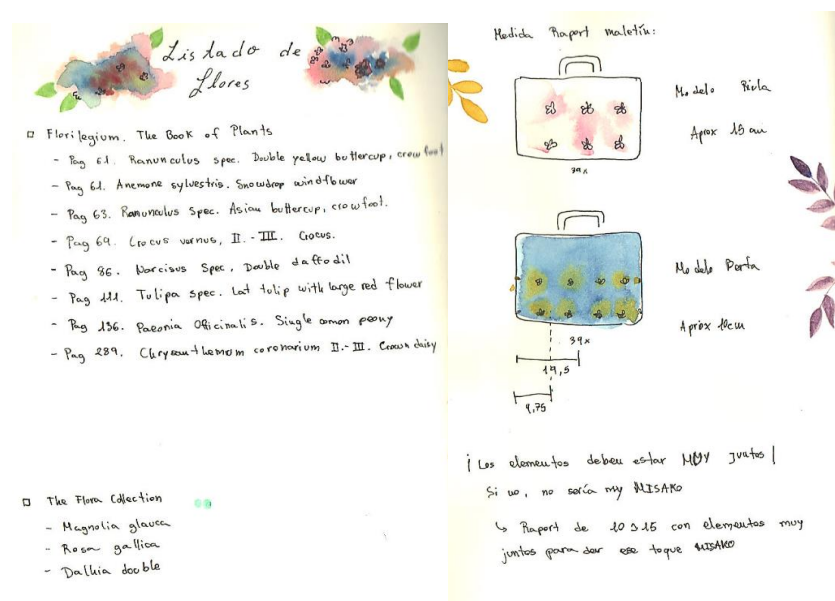 Listado de
Flores
Florilegium. The Book of Plants
- Pag 61. Ranunculus spec. Double yellow buttercup, crow foot
- Pag 61. Anemone sylvestris. Snowdrop windflower
- Pag 63. Ranunculus Spec. Asian buttercup, crowfoot.
- Pag 69. Crocus vernus, II.-III. Crocus.
- Pag 86. Narcisus Spec, Double daffodil
- Pag 111. Tulipa spec. Lat tulip with large red flower
- Pag 136. Paeonia Officinalis. Single comon peony
- Pag 289. Chrysanthemum coronarium II.-III. Crown daisy
The Flora Collection
- Magnolia glauca
- Rosa gallica
- Dalhia double
Medida Raport maletín:
Modelo
Aprox 15 cm
39x
Modelo Berta
Aprox 10cm
39x
19,5
9,75
¡Los elementos deben estar MUY juntos!
Si no, no sería muy MISAKO
↳ Raport de 10 a 15 con elementos muy
juntos para dar ese toque MISAKO